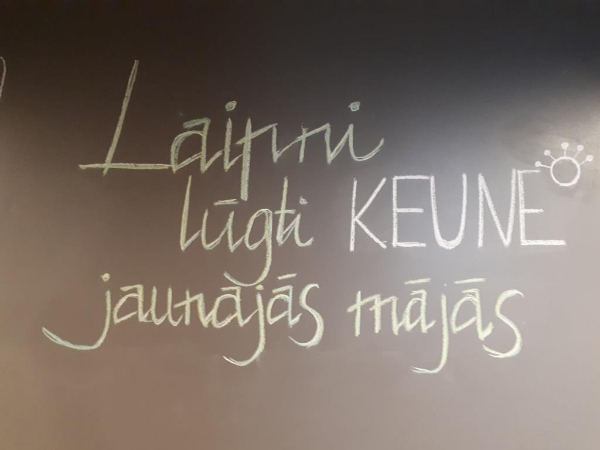 Laipni
lūgti KEUNE
jaunajās mājās